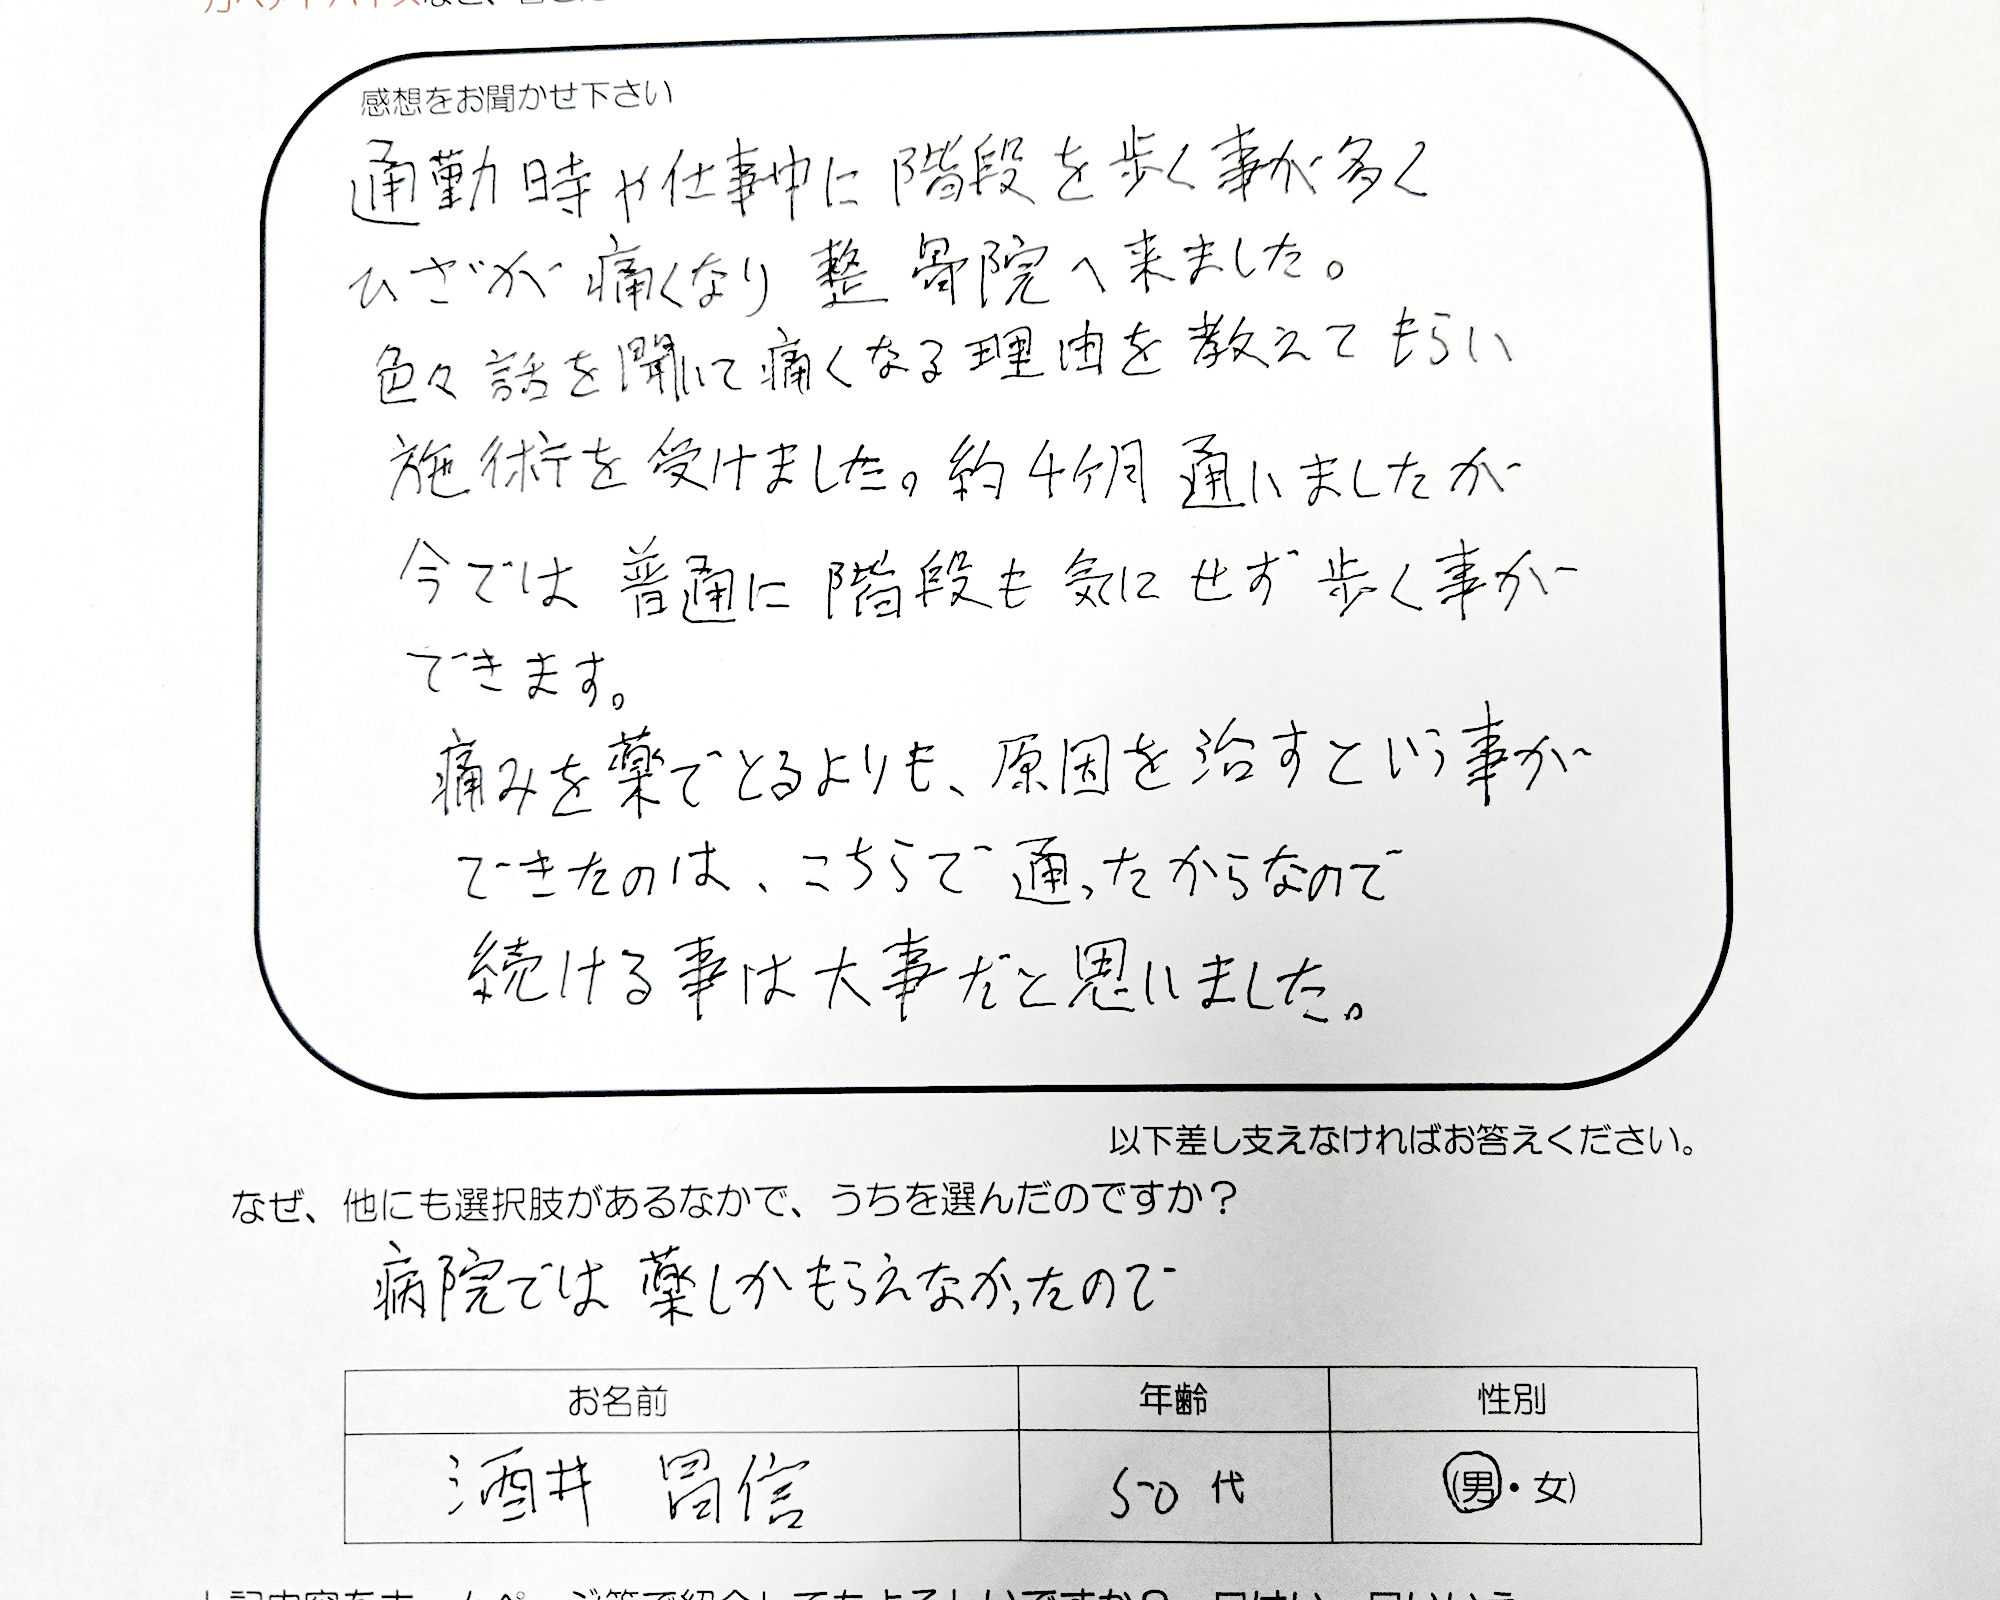 感想をお聞かせ下さい
通勤時や仕事中に階段を歩く事が多く
ひざが痛くなり整骨院へ来ました。
色々話を聞いて痛くなる理由を教えてもらい
施術を受けました。約4ケ月通いましたが
今では普通に階段も気にせず歩く事が
できます。
痛みを薬でとるよりも、原因を治すという事が
できたのは、こちらで通ったからなので
続ける事は大事だと思いました。
以下差し支えなければお答えください。
なぜ、他にも選択肢があるなかで、うちを選んだのですか？
病院では薬しかもらえなかったので
お名前 年齢 性別
酒井 昌信 50代 (男・女)
上記内容をホームページ等で紹介してもよろしいですか？ 口はい 口いいえ